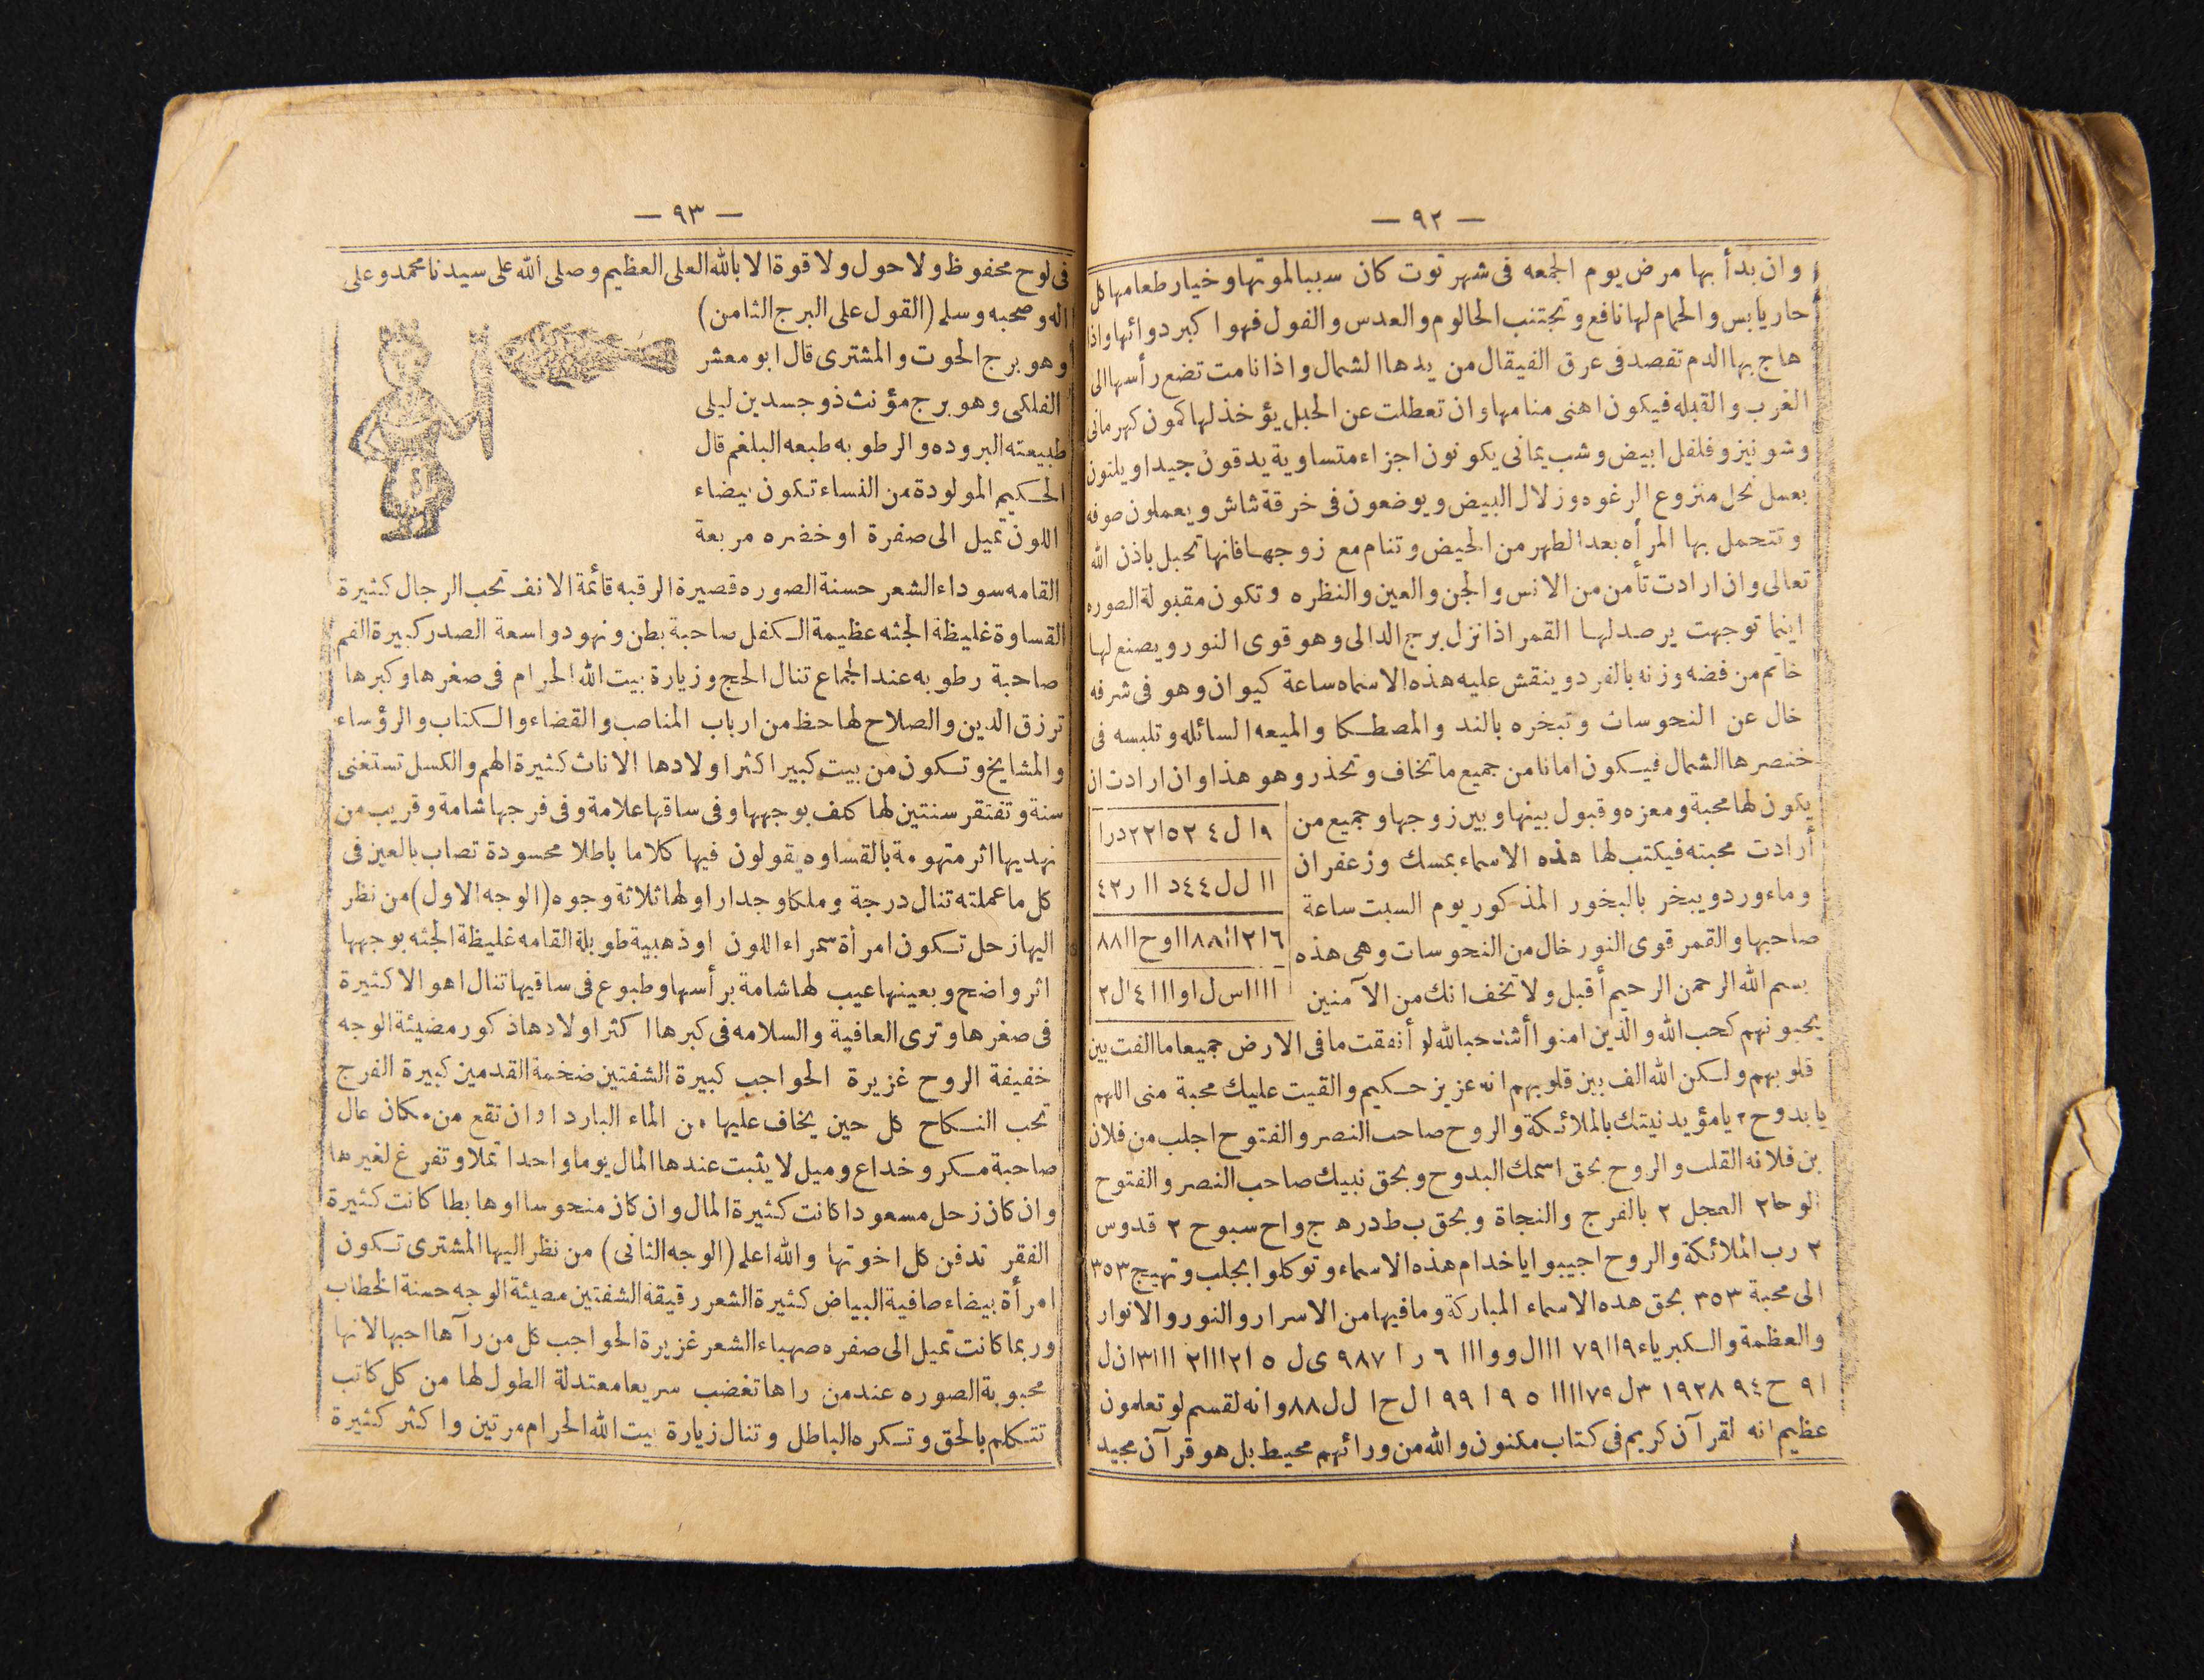 — ٩٢ —
وان بدأ بها مرض يوم الجمعه فى شهر توت كان سببا لموتها وخيار طعامها كل
حار يابس والحمام لها نافع وتجتنب الحالوم والعدس والفول فهوا كبر دوائها واذا
هاج بها الدم تفصد فى عرق الفيقال من يدها الشمال واذا نامت تضع رأسها الى
الغرب والقبله فيكون اهنى منامها وان تعطلت عن الحبل يؤخذ لها كمون كهرمانى
وشونيز وفلفل ابيض وشب يمانى يكونون اجزاء متساوية يدقون جيدا ويلتون
بعسل نحل منزوع الرغوه وزلال البيض ويوضعون فى خرقة شاش ويعملون صوفه
وتتحمل بها المرأه بعد الطهر من الحيض وتنام مع زوجها فانها تحبل باذن الله
تعالى وان ارادت تأمن من الانس والجن والعين والنظره وتكون مقبولة الصوره
اينما توجهت يرصد لها القمر اذا نزل برج الدالى وهو قوى النور ويصنع لها
خاتم من فضه وزنه بالفرد وينقش عليه هذه الاسماء ساعة كيوان وهو فى شرفه
خال عن النحوسات وتبخره بالند والمصطكا والميعه السائله وتلبسه فى
خنصرها الشمال فيكون امانا من جميع ما تخاف وتحذر وهو هذا وان ارادت ان
يكون لها محبة ومعزه وقبول بينها وبين زوجها وجميع من
أرادت محبته فيكتب لها هذه الاسماء بمسك وزعفران
وماء ورد ويبخر بالبخور المذكور يوم السبت ساعة
صاحبها والقمر قوى النور خال من النحوسات وهى هذه
بسم الله الرحمن الرحيم أقبل ولا تخف انك من الآمنين
٩ا ل ٤ ٢ ١٥ ٢٢درا
اا ل ل ٤٤د اا ر٤٢
٦ا٢اا٨٨ااوح اا٨٨
ااااس ل اوااا ٤ ل ٢
يحبونهم كحب الله والذين امنوا أشد حبا لله لو أنفقت ما فى الارض جميعا ما الفت بين
قلوبهم ولكن الله الف بين قلوبهم انه عزيز حكيم والقيت عليك محبة منى اللهم
يا بدوح ٢ يا مؤيد نيتك بالملائكة والروح صاحب النصر والفتوح اجلب من فلان
بن فلانه القلب والروح بحق اسمك البدوح وبحق نبيك صاحب النصر والفتوح
الوحا ٢ العجل ٢ بالفرج والنجاة وبحق ب ط د ر ه ج واح سبوح ٢ قدوس
٢ رب الملائكة والروح اجيبوا يا خدام هذه الاسماء وتوكلوا بجلب وتهيج ٣٥٣
الى محبة ٣٥٣ بحق هده الاسماء المباركة وما فيها من الاسرار والنور والانوار
والعظمة والكبرياء ٩اا٧٩ اااال وو ااا ٦ ر ا ٩٨٧ ى ل ٥ ا٢اااا٢ ااا٣ان ل
ا٩ ح ٩٤ ١٩٢٨ ٣ل ٧٩اااا ٥ ٩ ا ٩٩ ا ل ح ا ل ل ٨٨ وانه لقسم لو تعلمون
عظيم انه لقرآن كريم فى كتاب مكنون والله من ورائهم محيط بل هو قرآن مجيد
— ٩٣ —
فى لوح محفوظ ولا حول ولا قوة الا بالله العلى العظيم وصلى الله على سيدنا محمد وعلى
اله وصحبه وسلم (القول على البرج الثامن)
وهو برج الحوت والمشترى قال ابو معشر
الفلكى وهو برج مؤنث ذو جسدين ليلى
طبيعته البروده والرطوبه طبعه البلغم قال
الحكيم المولودة من النساء تكون بيضاء
اللون تميل الى صفرة او خضره مربعة
القامه سوداء الشعر حسنة الصوره قصيرة الرقبه قائمة الانف تحب الرجال كثيرة
القساوة غليظة الجثه عظيمة الكفل صاحبة بطن ونهود واسعة الصدر كبيرة الفم
صاحبة رطوبه عند الجماع تنال الحج وزيارة بيت الله الحرام فى صغرها وكبرها
ترزق الدين والصلاح لها حظ من ارباب المناصب والقضاء والكتاب والرؤساء
والمشايخ وتكون من بيت كبير اكثر اولادها الاناث كثيرة الهم والكسل تستغنى
سنة وتفتقر سنتين لها كلف بوجهها وفى ساقها علامة وفى فرجها شامة وقريب من
نهديها اثر متهومة بالقساوه يقولون فيها كلاما باطلا محسودة تصاب بالعين فى
كل ما عملته تنال درجة وملكا وجدار اولها ثلاثة وجوه (الوجه الاول) من نظر
اليها زحل تكون امرأة سمراء اللون او ذهبية طويلة القامه غليظة الجثه بوجهها
اثر واضح وبعينها عيب لها شامة برأسها وطبوع فى ساقيها تنال اهوالا كثيرة
فى صغرها وترى العافية والسلامه فى كبرها اكثر اولادها ذكور مضيئة الوجه
خفيفة الروح غزيرة الحواجب كبيرة الشفتين ضخمة القدمين كبيرة الفرج
تحب النكاح كل حين يخاف عليها من الماء البارد او ان تقع من مكان عال
صاحبة مكر وخداع وميل لا يثبت عندها المال يوما واحدا تملا وتفرغ لغيرها
وان كان زحل مسعودا كانت كثيرة المال وان كان منحوسا او هابطا كانت كثيرة
الفقر تدفن كل اخوتها والله اعلم (الوجه الثانى) من نظر اليها المشترى تكون
امرأة بيضاء صافية البياض كثيرة الشعر رقيقة الشفتين مضيئة الوجه حسنة الخطاب
وربما كانت تميل الى صفره صهباء الشعر غزيرة الحواجب كل من رآها احبها لانها
محبوبة الصوره عند من راها تغضب سريعا معتدلة الطول لها من كل كاتب
تتكلم بالحق وتكره الباطل وتنال زيارة بيت الله الحرام مرتين واكثر كثيرة